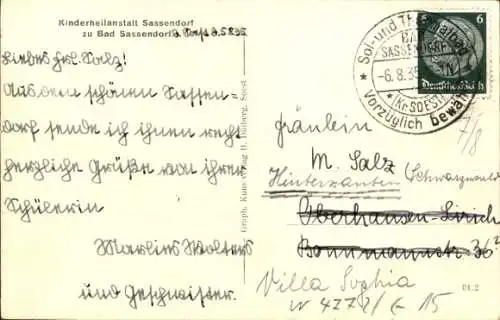 Kinderheilanstalt Sassendorf
zu Bad Sassendorf
Liebes Frl. Salz!
Aus dem schönen Sassen=
dorf sende ich ihnen recht
herzliche Grüße von ihrer
Schülerin
Marlies Wolters
und Geschwister.
Graph. Kunstverlag H. Hülberg, Soest
Sol- und Thermalbad
BAD
SASSENDORF
-6.8.35
(Kr. SOEST)
Vorzüglich bewährt
6
Deutsches Reich
Fräulein
M. Salz
Hinterzarten (Schwarzwald
Oberhausen-Lirich
Bonnmannstr. 36
Villa Sophia
7/8